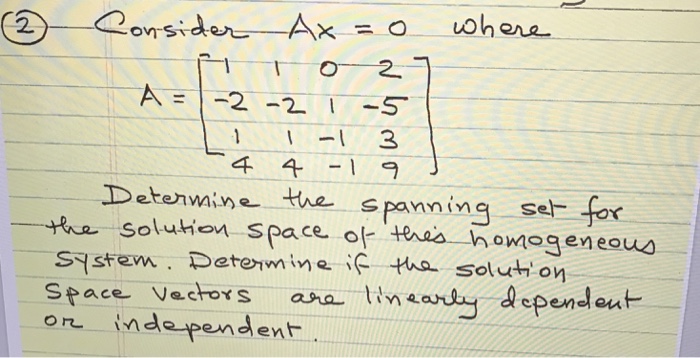 ② Consider Ax = 0 where
A = [ 1 1 0 2
-2 -2 1 -5
1 1 -1 3
4 4 -1 9 ]
Determine the spanning set for
the solution space of the's homogeneous
system. Determine if the solution
space vectors are linearly dependent
or independent.